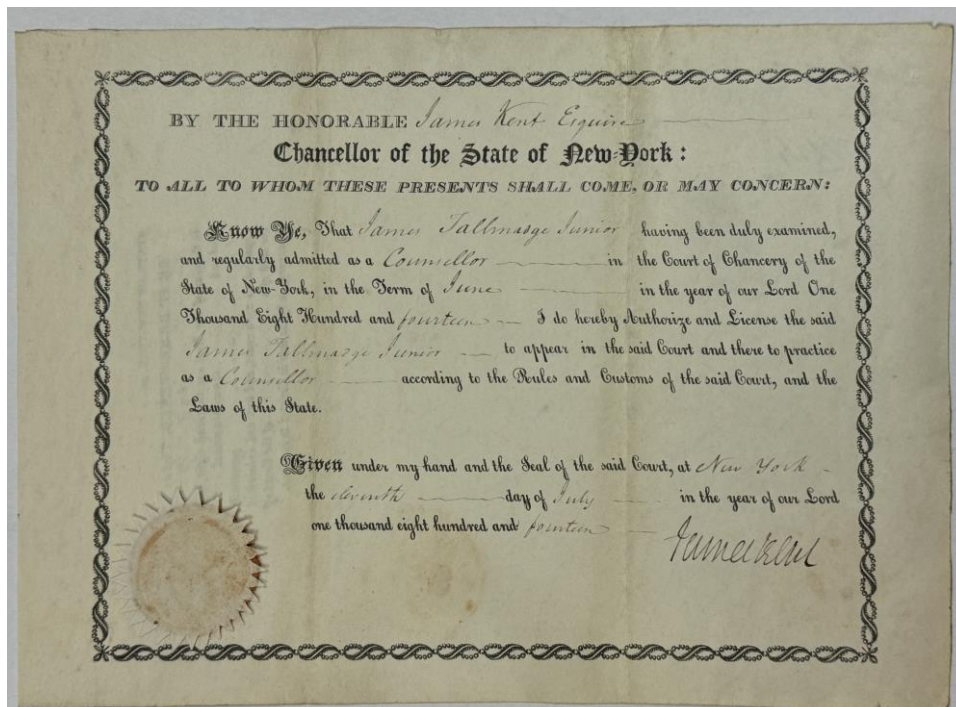 BY THE HONORABLE James Kent Esquire
Chancellor of the State of New-York:
TO ALL TO WHOM THESE PRESENTS SHALL COME, OR MAY CONCERN:
Know Ye, That James Tallmadge Junior having been duly examined,
and regularly admitted as a Counsellor in the Court of Chancery of the
State of New-York, in the Term of June in the year of our Lord One
Thousand Eight Hundred and fourteen I do hereby Authorize and License the said
James Tallmadge Junior to appear in the said Court and there to practice
as a Counsellor according to the Rules and Customs of the said Court, and the
Laws of this State.
Given under my hand and the Seal of the said Court, at New York
the eleventh day of July in the year of our Lord
one thousand eight hundred and fourteen
James Kent